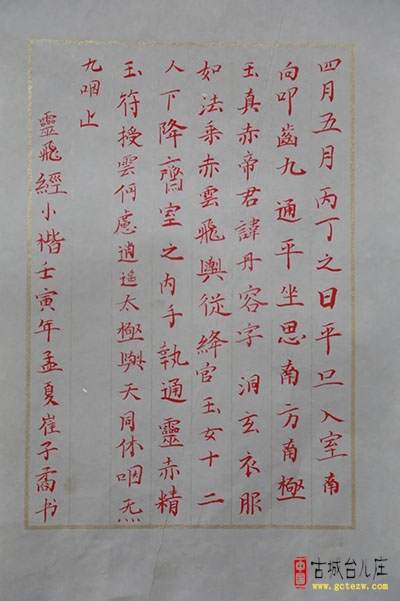 四月五月丙丁之日平旦入室南
向叩齒九通平坐思南方南極
玉真赤帝君諱丹容字洞玄衣服
如法乘赤雲飛輿從絳宮玉女十二
人下降齋室之內手執通靈赤精
玉符授雲何慮逍遥太極與天同休咽炁
九咽止
靈飛經小楷壬寅年孟夏崔子矞书
中国
古城台儿庄
www.gctezw.com